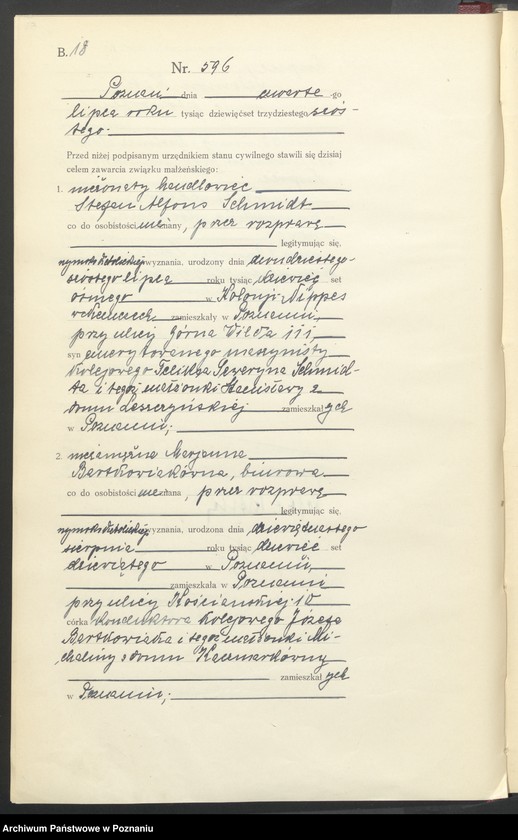 B. 18
Nr. 596
Poznań dnia czwarte -go
lipca roku tysiąc dziewięćset trzydziestego szós-
tego.
Przed niżej podpisanym urzędnikiem stanu cywilnego stawili się dzisiaj
celem zawarcia związku małżeńskiego:
1. nieżonaty handlowiec
Stefan Alfons Schmidt
co do osobistości nieznany, przez rozprawę
legitymując się,
rzymskokatolickiego wyznania, urodzony dnia dwudziestego-
szóstego lipca roku tysiąc dziewięć set
ósmego w Kolonji-Nippes
w Niemczech zamieszkały w Poznaniu,
przy ulicy Górna Wilda 111,
syn emerytowanego maszynisty
kolejowego Feliksa Seweryna Schmid-
ta i tegoż małżonki Stanisławy z
domu Leszczyńskiej zamieszkałych
w Poznaniu;
2. niezamężna Marjanna
Bartkowiakówna, biurowa
co do osobistości nieznana, przez rozprawę
legitymując się,
rzymskokatolickiego wyznania, urodzona dnia dziewiętnastego
sierpnia roku tysiąc dziewięć set
dziewiątego w Poznaniu,
zamieszkała w Poznaniu
przy ulicy Kościańskiej 10
córka konduktora kolejowego Józefa
Bartkowiaka i tegoż małżonki Mi-
chaliny z domu Kaczmarkówny
zamieszkałych
w Poznaniu;
Archiwum Państwowe w Poznaniu